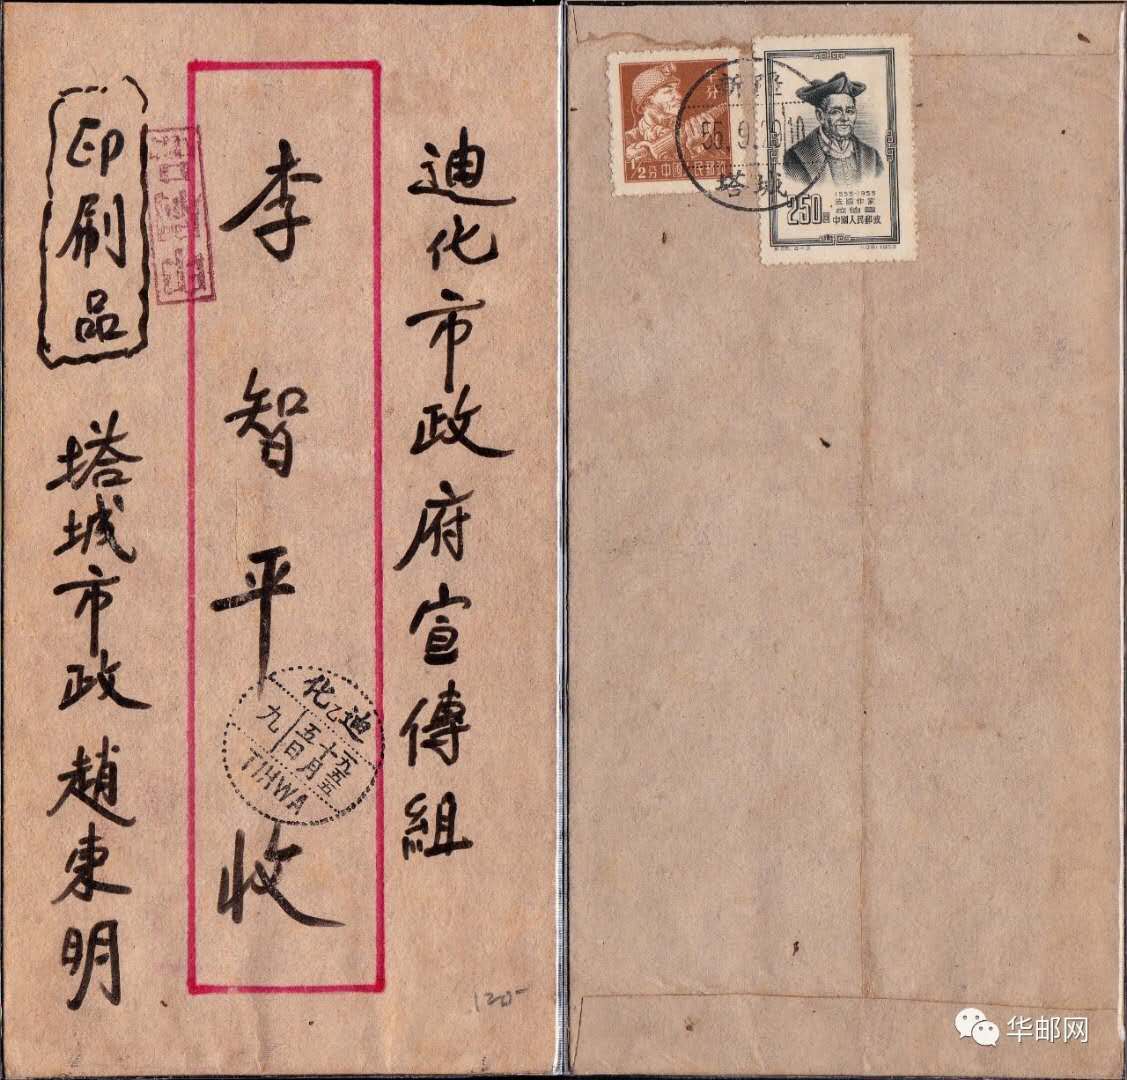 迪化市政府宣傳組
李智平收
印刷品
塔城市政 趙東明
迪化
乙
一九五五
十月
五日
九
TIHWA
120-
新疆
55.9.29.10
塔城
1/2分 中國人民郵政
1553-1953
法國作家
250圓
中國人民郵政
华邮网